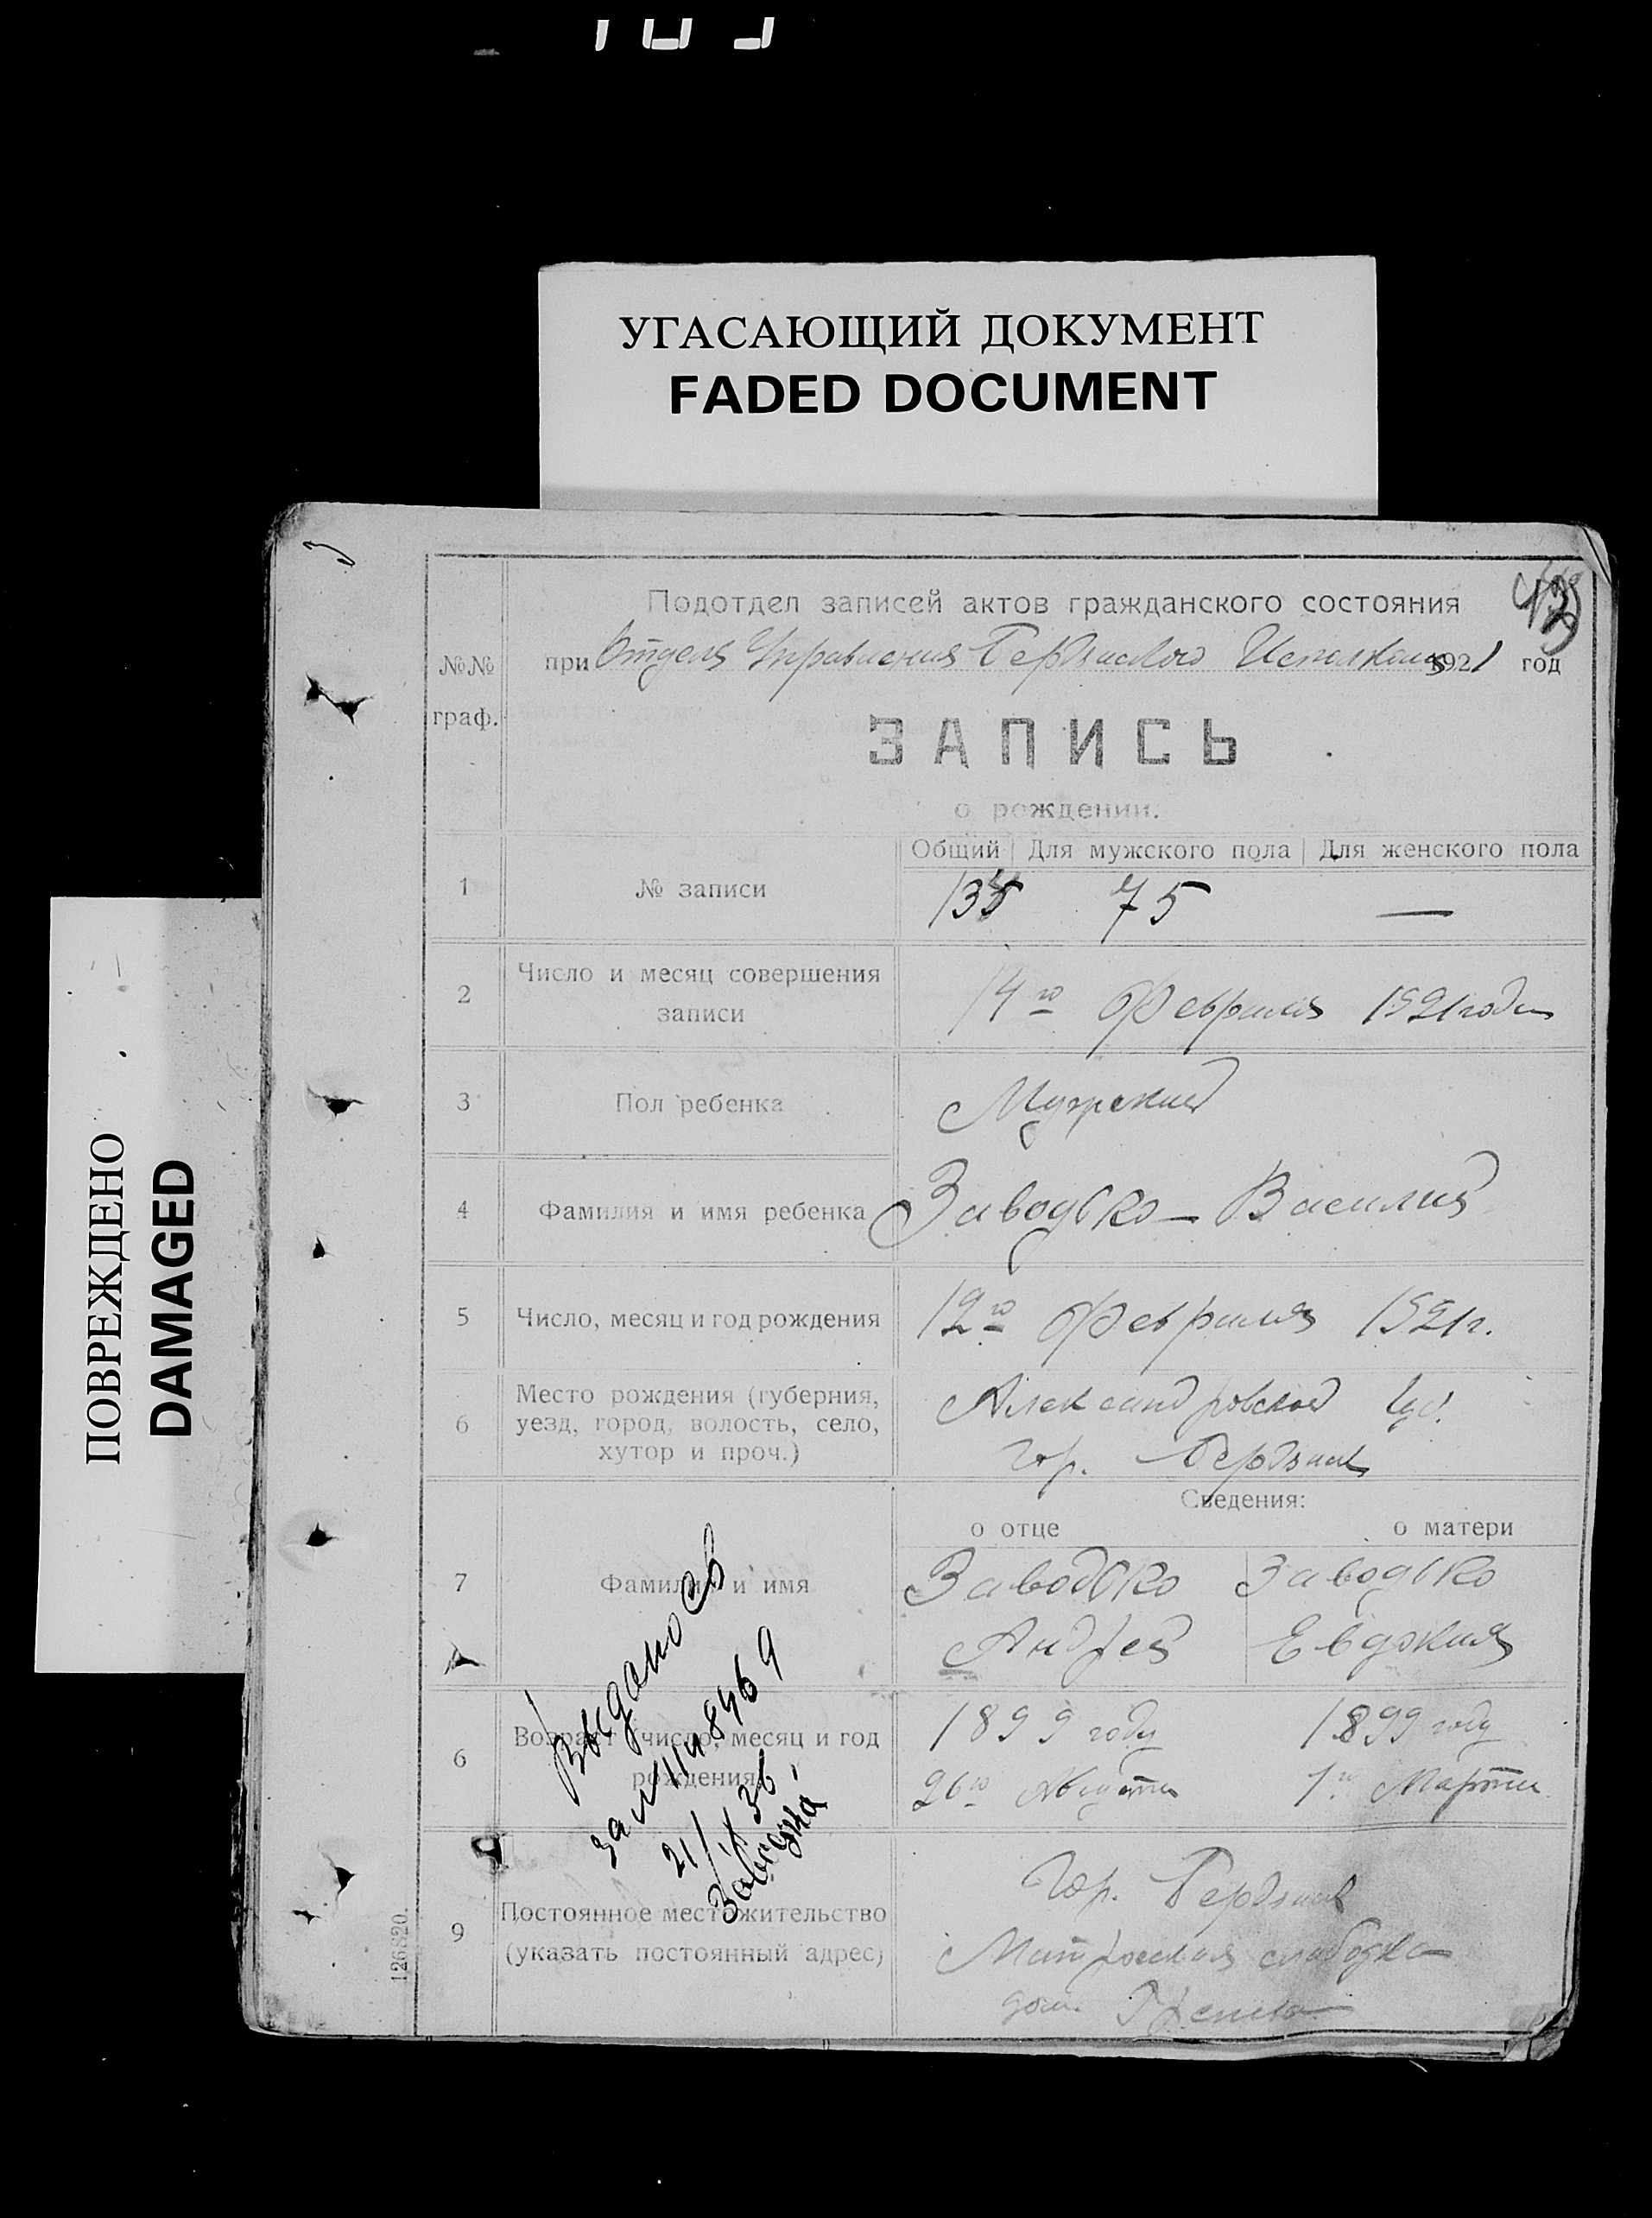 УГАСАЮЩИЙ ДОКУМЕНТ
FADED DOCUMENT
ПОВРЕЖДЕНО
DAMAGED
Подотдел записей актов гражданского состояния
№№ граф.
при Отделе Управления Бердянского Исполкома 1921 год
ЗАПИСЬ
о рождении.
Общий Для мужского пола Для женского пола
1 № записи 135 75 —
2 Число и месяц совершения записи 14го Февраля 1921 года
3 Пол ребенка Мужской
4 Фамилия и имя ребенка Заводько — Василий
5 Число, месяц и год рождения 12го Февраля 1921 г.
6 Место рождения (губерния,
уезд, город, волость, село,
хутор и проч.)
Александровской губ.
гор. Бердянск
Сведения:
о отце о матери
7 Фамилия и имя
Заводько Заводько
Андрей Евдокия
6 Возраст (число, месяц и год
рождения
1899 году 1899 году
26го Августа 1го Марта
9 Постоянное местожительство
(указать постоянный адрес)
Гор. Бердянск
Матросская слободка
дом
Выдано св
за № 1148469
21/IX 36
126820